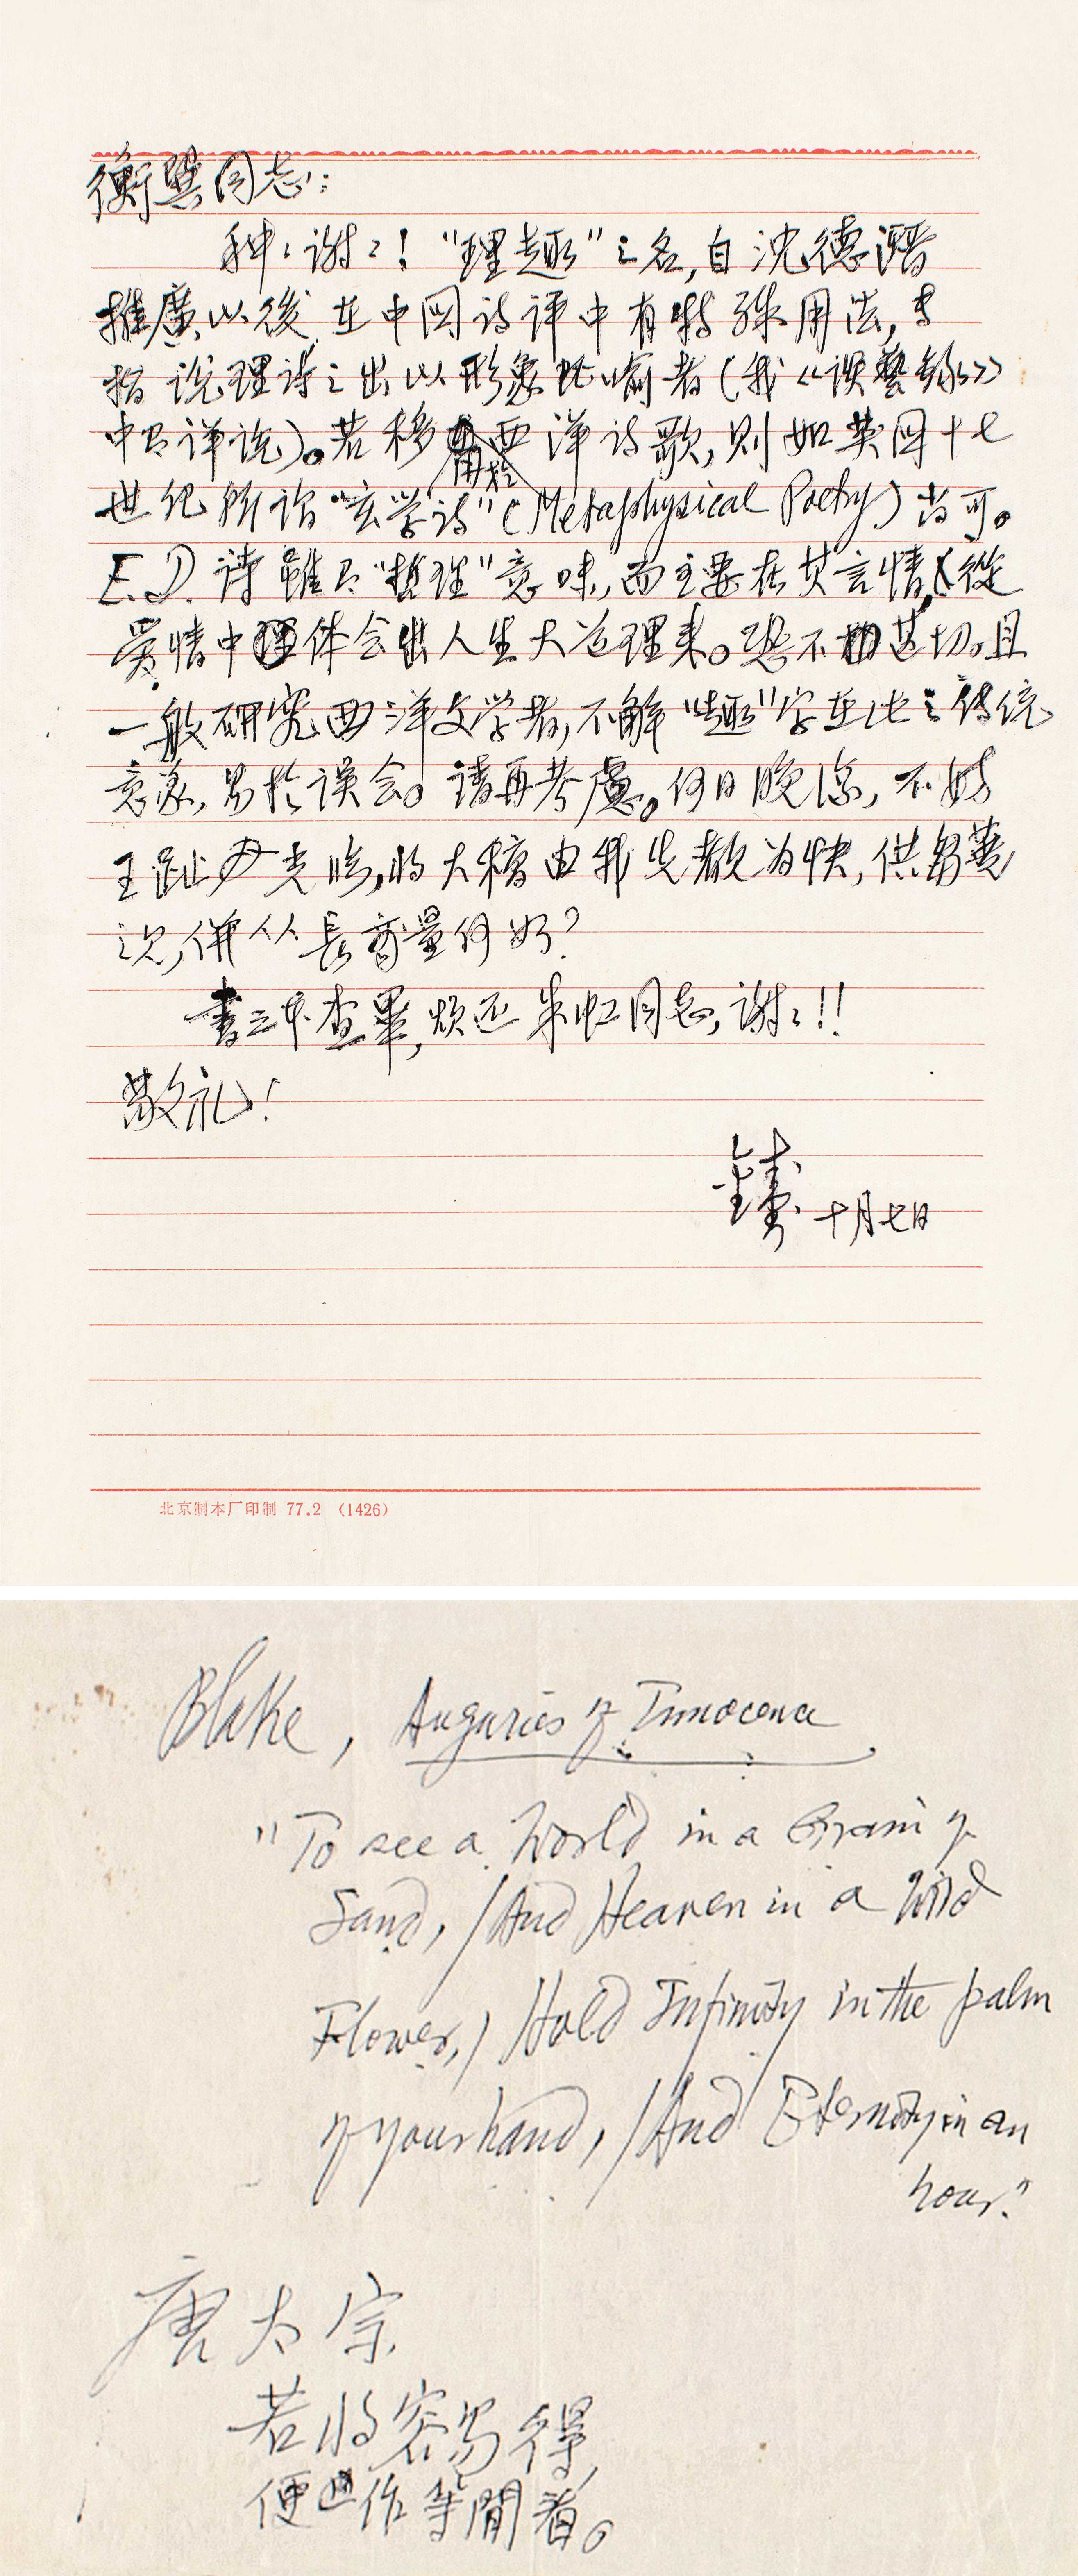 衡巽同志:
种々谢々!“理趣”之名,自沈德潜
推廣以後,在中国诗评中有特殊用法,专
指说理诗之出以形象比喻者(我《谈藝録》
中有详说)。若移用於西洋诗歌,则如英国十七
世纪所谓“玄学诗”(Metaphysical Poetry)尚可。
E.D.诗雖有“哲理”意味,而主要在其言情(從
爱情中体会出人生大道理来)。恐不甚切。且
一般研究西洋文学者,不解“趣”字在此之传统
意義,易於误会。请再考慮。何日脱稿,不妨
玉趾光临,将大稿由我先覩为快,供芻蕘
之见,併从長商量何如?
書三本查畢,烦还朱虹同志,谢々!!
敬礼!
十月七日
北京制本厂印制 77.2 (1426)
Blake, Auguries of Innocence
"To see a World in a Grain of
Sand, / And Heaven in a Wild
Flower, / Hold Infinity in the palm
of your hand, / And Eternity in an
hour."
唐太宗
若将容易得,
便作等閒看。